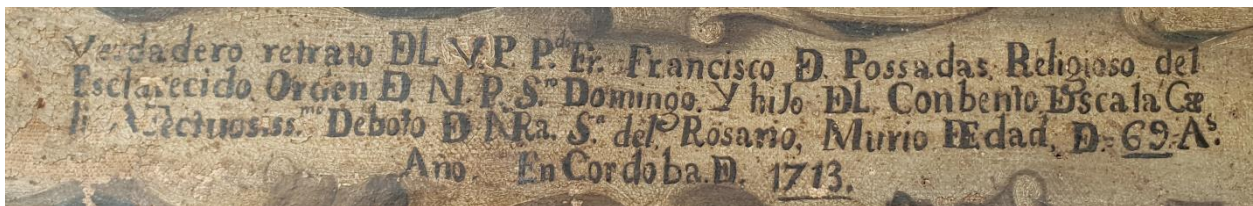 Verdadero retrato DL V. P. P.do Fr. Francisco D. Possadas, Religioso del
Esclarecido Orden D N. P. S.to Domingo. Y hiJo DL Conbento Escala Cœ
li Afectuosiss.mo Deboto D NRa. S.a del Rosario, Murio DEdad, D. 69. A.s
Ano. En Cordoba. D. 1713.